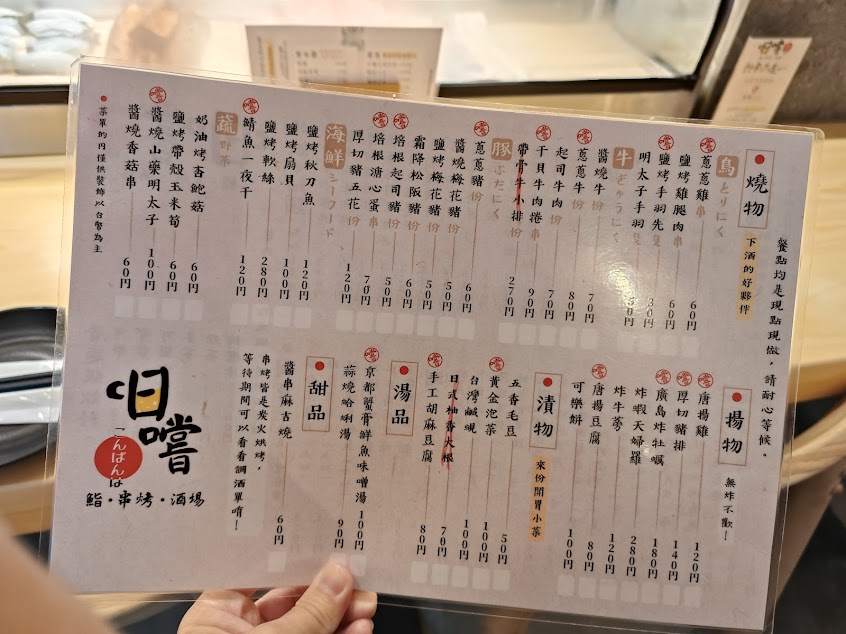 餐點均是現點現做，請耐心等候。
燒物
下酒的好夥伴
鳥 とりにく
嚐 蔥蔥雞串 60円
嚐 鹽烤雞腿肉串 60円
鹽烤手羽先隻 30円
明太子手羽隻 50円
牛 ぎゅうにく
醬燒牛份 70円
嚐 蔥蔥牛份 80円
起司牛肉份 70円
嚐 干貝牛肉捲串 90円
帶骨牛小排份 270円
豚 ぶたにく
嚐 蔥蔥豬份 60円
醬燒梅花豬份 50円
鹽烤梅花豬份 50円
霜降松阪豬份 60円
嚐 培根起司豬串 50円
嚐 培根溏心蛋串 70円
厚切豬五花份 120円
海鮮 シーフード
鹽烤秋刀魚 120円
鹽烤扇貝 100円
鹽烤軟絲 280円
嚐 鯖魚一夜干 120円
蔬 野菜
奶油烤杏鮑菇 60円
鹽烤帶殼玉米筍 60円
嚐 醬燒山藥明太子 100円
醬燒香菇串 60円
菜單的円僅供裝飾以台幣為主
揚物
無炸不歡！
嚐 唐揚雞 120円
嚐 厚切豬排 140円
嚐 廣島炸牡蠣 180円
炸蝦天婦羅 280円
炸牛蒡 120円
嚐 唐揚豆腐 80円
可樂餅 100円
漬物
來份開胃小菜
五香毛豆 50円
嚐 黃金泡菜 100円
台灣鹹蜆 100円
日式柚香大根 70円
嚐 手工胡麻豆腐 80円
湯品
嚐 京都蟹膏鮮魚味噌湯 100円
蒜燒哈唎湯 90円
甜品
醬串麻吉燒 60円
串烤皆是炭火烘烤，
等待期間可以看看調酒單唷！
旧嚐
こんばんは
鮨・串烤・酒場